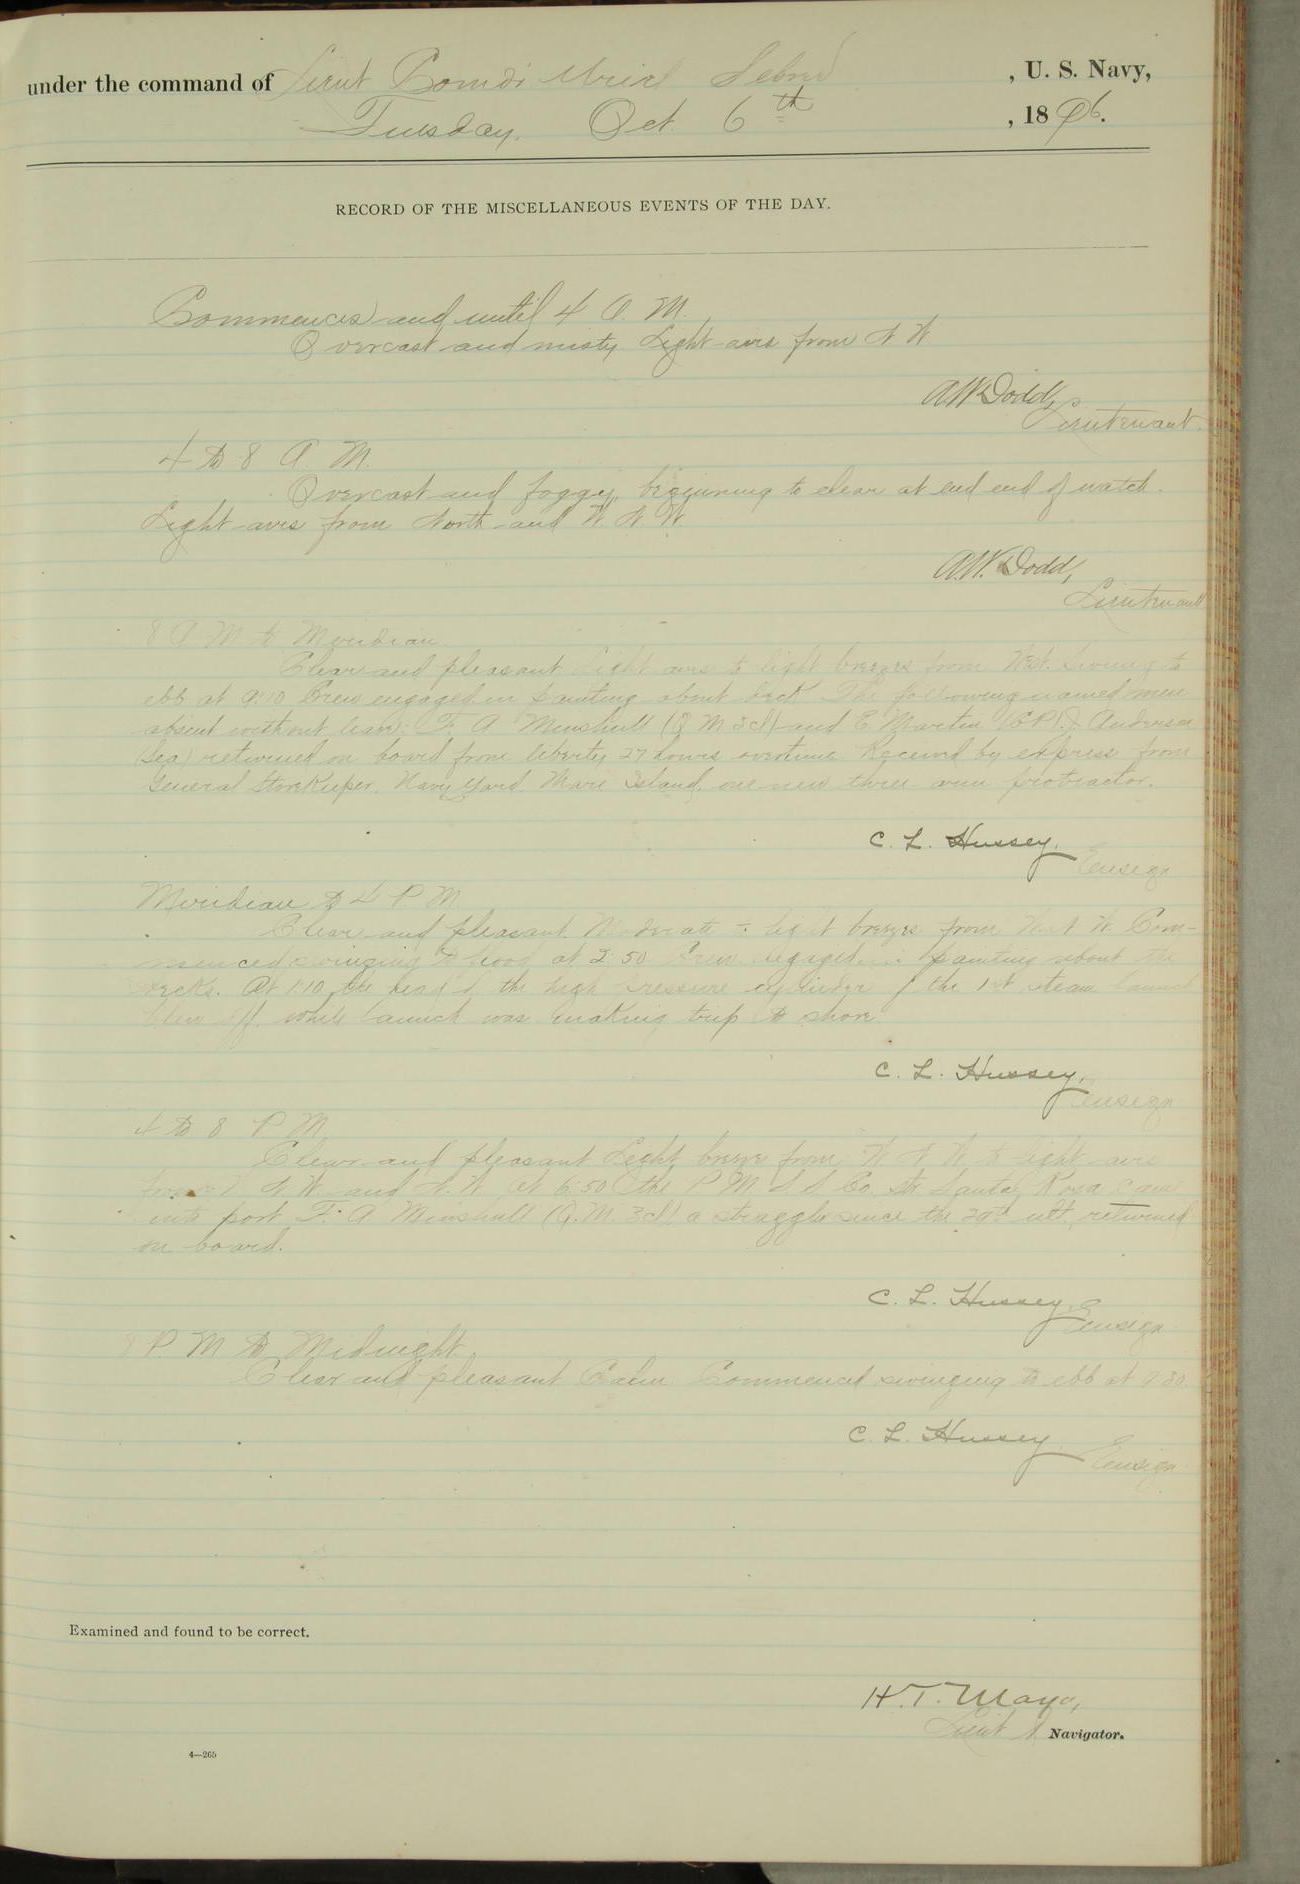 under the command of Lieut Comdr Uriel Sebree, U. S. Navy,
Tuesday, Oct. 6th, 1896.
RECORD OF THE MISCELLANEOUS EVENTS OF THE DAY.
Commences and until 4 A. M.
Overcast and misty Light airs from N W
A.W. Dodd,
Lieutenant.
4 to 8 A. M.
Overcast and foggy, beginning to clear at end end of watch.
Light airs from North and W N W
A.W. Dodd,
Lieutenant
8 A M to Meridian
Clear and pleasant Light airs to light breezes from West. Swung to
ebb at 9:10 Crew engaged in painting about deck The following named men
absent without leave: F. A Minshull (Q M 3cl) and E Martin J. Anderson
(Sea) returned on board from liberty 27 hours overtime Received by express from
General Storekeeper, Navy Yard Mare Island, one new three arm protractor.
C. L. Hussey,
Ensign
Meridian to 4 P M
Clear and pleasant Moderate to light breezes from W N W Com-
menced swinging to flood at 2:50 Crew engaged in painting about the
decks. At 1:10 the head of the high pressure cylinder of the 1st steam launch
blew off while launch was making trip to shore
C. L. Hussey,
Ensign
4 to 8 P M
Clear and pleasant Light breeze from W N W to light airs
from N. W and N. W At 6:50 the P M S S Co. str Santa Rosa came
into port F. A Minshull (Q.M. 3cl) a straggler since the 29th ult, returned
on board.
C. L. Hussey,
Ensign
8 P. M to Midnight
Clear and pleasant Calm Commenced swinging to ebb at 9 30
C. L. Hussey
Ensign
Examined and found to be correct.
H. T. Mayo,
Lieut Navigator.
4—265